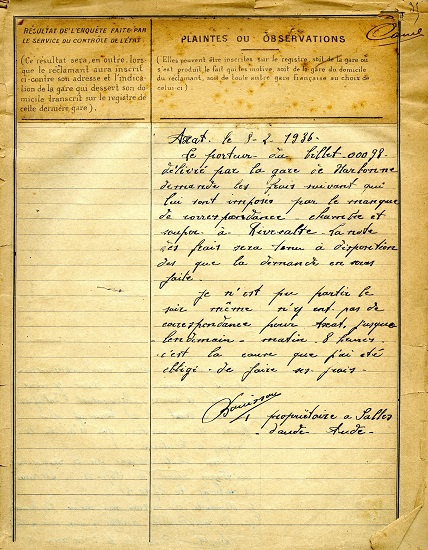 RÉSULTAT DE L'ENQUÊTE FAITE PAR
LE SERVICE DU CONTRÔLE DE L'ÉTAT.
(Ce résultat sera, en outre, lors-
que le réclamant aura inscrit
ci-contre son adresse et l'indica-
tion de la gare qui dessert son do-
micile transcrit sur le registre de
cette dernière gare).
PLAINTES OU OBSERVATIONS
(Elles peuvent être inscrites sur le registre, soit de la gare où
s'est produit le fait qui les motive, soit de la gare du domicile
du réclamant, soit de toute autre gare française au choix de
celui-ci).
Axat. le 8-2-1936-
Le porteur du billet 00098
délivré par la gare de Narbonne
demande les frais suivant qui
lui sont imposés par le manque
de correspondance - chambre et
souper à Rivesalte. La note
des frais sera tenu à disposition
des que la demande en sera
faite
Je n'est peu partir le
soir même n'y ent pas de
correspondance pour Axat, jusque
lendemain - matin - 8 heures.
c'est la cause que j'ai été
obligé de faire ses frais.
propriétaire a Salles
d'aude - Aude -